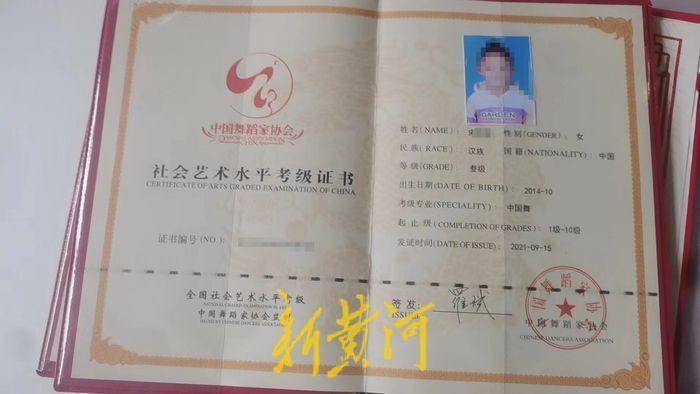 中国舞蹈家协会
CHINESE DANCERS ASSOCIATION
CHINA
社会艺术水平考级证书
CERTIFICATE OF ARTS GRADED EXAMINATION OF CHINA
证书编号(NO.):
全国社会艺术水平考级
NATIONAL GRADED EXAMINATION IN ARTS
中国舞蹈家协会
GARDEN
姓名(NAME): 宋 性别(GENDER): 女
民族(RACE): 汉族 国籍(NATIONALITY): 中国
等级(GRADE): 叁级
出生日期(DATE OF BIRTH): 2014-10
考级专业(SPECIALITY): 中国舞
起止级(COMPLETION OF GRADES): 1级-10级
发证时间(DATE OF ISSUE): 2021-09-15
签发:
ISSUE
罗斌
中国舞蹈家协会
CHINESE DANCERS ASSOCIATION
新黄河